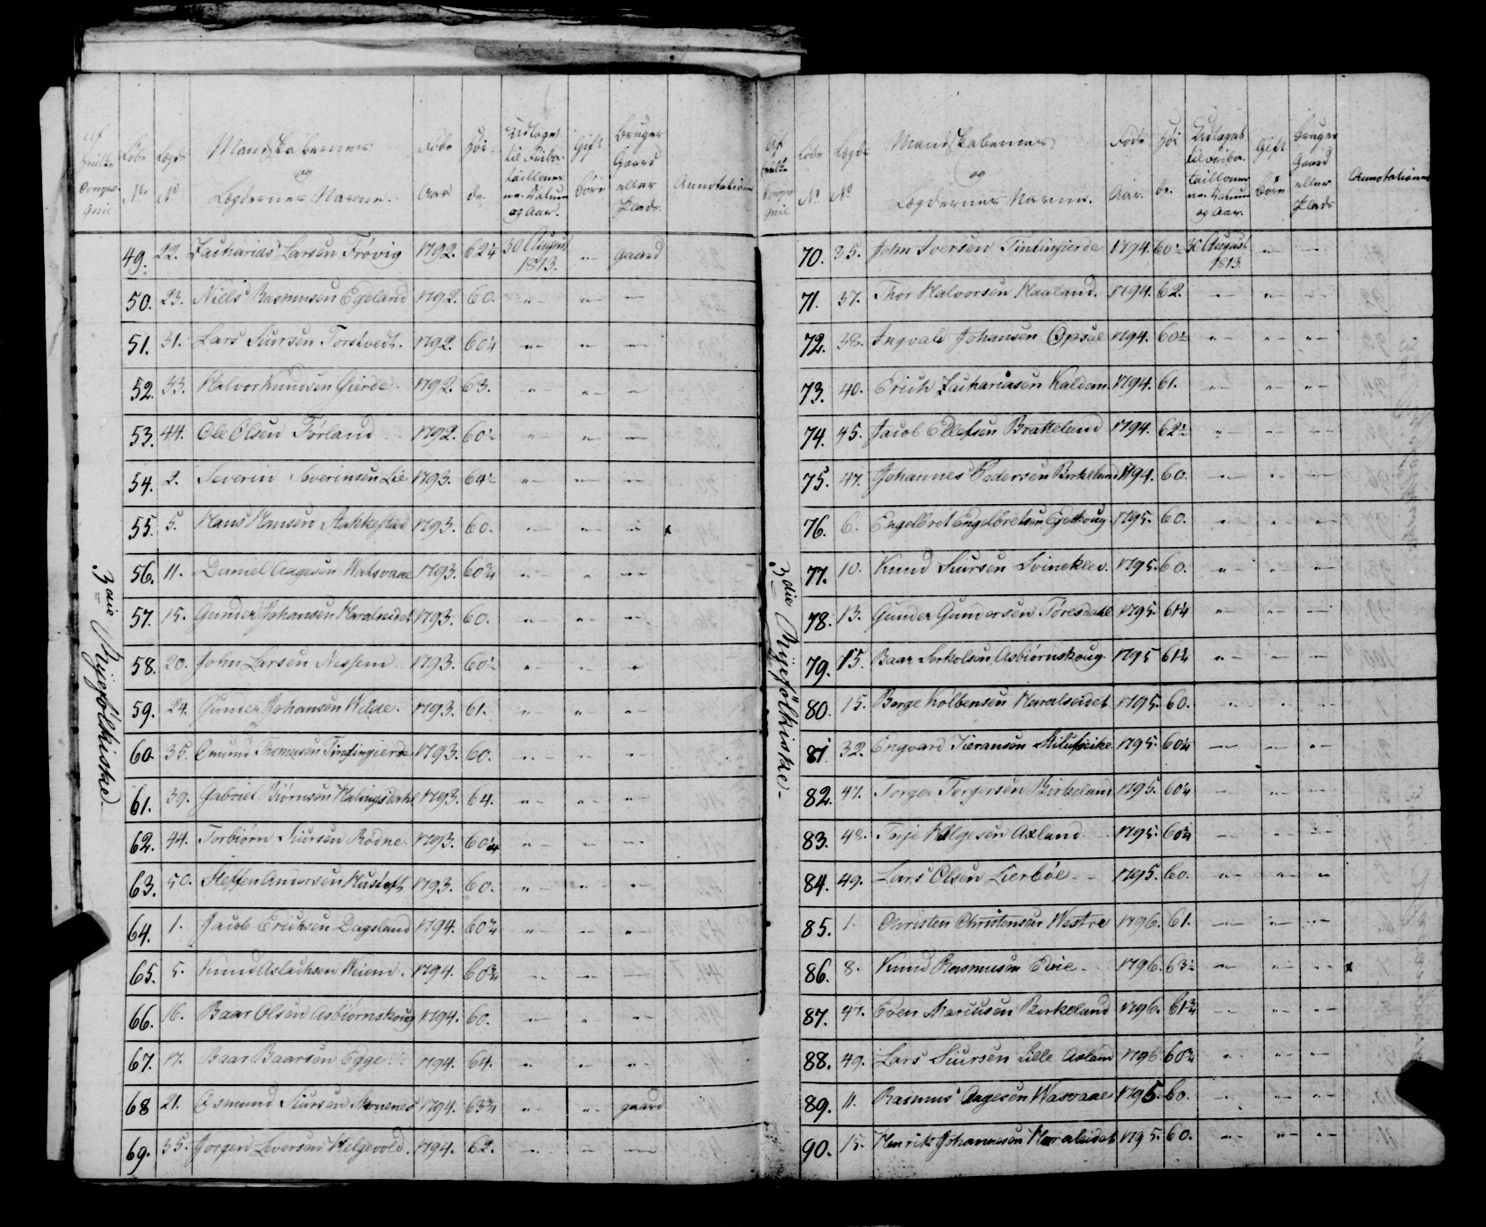 Mandskabernes og Lægdernes Navne. Føde Aar Høide Udtaget til Feltbataillonerne. Datum og Aar. Gift Børn Bruger Gaard eller Plads Annotationer
3die Ryefølkiske
49. 22. Zacharias Larsen Frøvig 1792. 62¼ 30 August 1813. "— Gaard
50. 23. Niels Rasmusen Egeland 1792. 60. "— "— —
51. 31. Lars Siursen Torstvedt. 1792. 60¼ "— "— "—
52. 33. Halvor Knudsen Gierde. 1792. 63. "— "— —
53. 44. Ole Olsen Førland 1792. 60½ "— "— —
54. 2. Severin Severinsen Lie 1793. 64½ "— "— —
55. 5. Hans Hansen Stakkestad 1793. 60. "— "— "—
56. 11. Daniel Aagesen Watsvaae 1793. 60¾ "— " "—
57. 15. Gunder Johansen Haralseidet 1793. 60. "— "— "—
58. 20. John Larsen Nessem 1793. 60½ "— "— "
59. 24. Gunder Johansen Welde. 1793. 61. "— " "—
60. 35. Omund Thomesen Tindingierde 1793. 60. "— "— "—
61. 39. Gabriel Biørnsen 1793. 64. "— "— "—
62. 44. Torbiørn Siursen Rødne. 1793. 60¼ "— "— "—
63. 50. Steffen Andersen Hustoft 1793. 60. "— "— "—
64. 1. Jacob Erichsen Dagsland 1794. 60¾ "— "— "
65. 5. Knud Aslachsen Weiem. 1794. 60¾ "— "— —
66. 16. Baar Olsen Asbiørnskoug 1794. 60. "— " "—
67. 17. Baar Baarsen Egge 1794. 64. "— "— "—
68 21. Osmund Siursen 1794. 63¾ "— "— gaard
69. 35. Jørgen Iversen Helgevold. 1794. 62. "— "— —
Mandskabernes og Lægdernes Navne. Føde Aar. Høide. Udtaget til Feltbataillonerne Datum og Aar. Gift Børn Bruger Gaard eller Plads Annotationer
3die Ryefølkiske.
70. 35. John Iversen Tindingierde 1794. 60½ 30 August 1813. "— —
71. 37. Thor Halvorsen Haaland. 1794. 62. "— "— —
72. 38. Ingvald Johansen Opsal 1794. 60½ "— "— "—
73. 40. Erich Zachariasen 1794. 61. "— "— "—
74. 45. Jacob Ellefsen Bratteland 1794. 62½ "— "— "—
75. 47. Johannes Pedersen Berkeland 1794. 60. "— "— "—
76. 6. Engelbret Engelbretsen 1795. 60. "— " "—
77. 10. Knud Siursen Svineklev. 1795. 60. "— " "—
78. 13. Gunder Gundersen Tøresdal 1795. 61¼ "— "— "—
79. 15. Baar Torkelsen Asbiørnskoug. 1795 61¾ "— "— "—
80. 15. Børge Kolbensen Haralseidet 1795. 60. "— "— "—
81. 32. Engvard 1795. 60¼ "— "— "
82. 47. Torger Torgersen Birkeland 1795. 60¼ "— "— "—
83. 48. Terje Helgesen Axland. 1795. 60¾ "— "— "—
84. 49. Lars Olsen Lierbøe 1795. 60. "— "— "
85. 1. Christen Christensen Westre 1796. 61. "— "— "—
86. 8. Knud Rasmusen Edie. 1796. 63½ "— "— "—
87. 47. Even Marcusen Berkeland 1796. 61¾ "— "— "—
88. 49. Lars Siursen Lille Axland 1796 60¾ "— "— "—
89. 11. Rasmus Aagesen Wasvaae 1795. 60. "— "— "—
90. 15. Henrik Johannesen Haraldseidet 1795. 60. "— "— "—